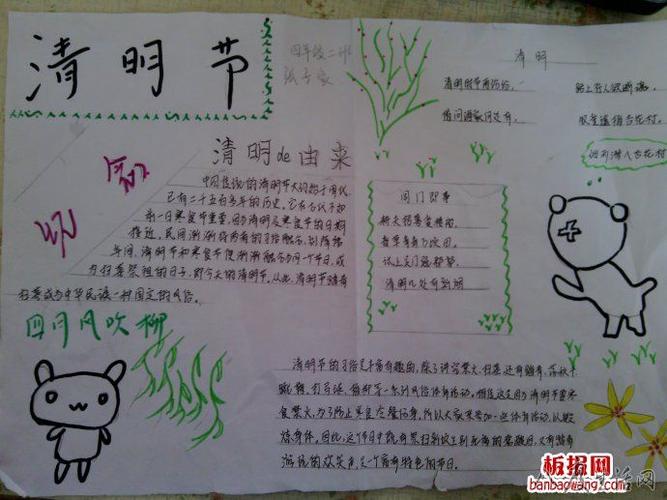 清明节
四年级二班
清明
清明时节雨纷纷, 路上行人欲断魂。
借问酒家何处有, 牧童遥指杏花村。
清明de由来
中国传统的清明节大约始于周代,
已有二千五百多年的历史,
接近,民间渐渐将两者的习俗融合,到隋唐
年间,清明节和寒食节便渐渐融合为同一个节日,成
为扫墓祭祖的日子,即今天的清明节。从此,清明节踏青
扫墓成为中华民族一种固定的风俗。
四月风吹柳
闾门即事
清明几处有新烟
清明节的习俗是丰富有趣的,除了讲究禁火、扫墓,还有踏青、荡秋千
蹴鞠、打马球、插柳等一系列风俗体育活动。相传这是因为清明节要寒
食禁火,为了防止寒食冷餐伤身,所以大家来参加一些体育活动,以锻
炼身体。因此,这个节日中既有祭扫新坟生别死离的悲酸泪,又有踏青
游玩的欢笑声,是一个富有特色的节日。
板报网
banbaowang.com